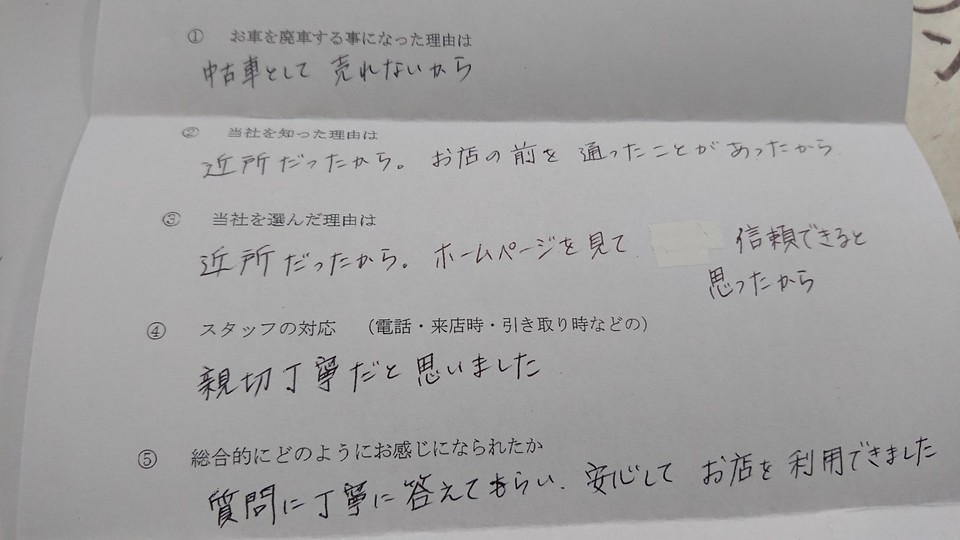 ① お車を廃車する事になった理由は
中古車として 売れないから
② 当社を知った理由は
近所だったから。お店の前を通ったことがあったから
③ 当社を選んだ理由は
近所だったから。ホームページを見て 信頼できると
思ったから
④ スタッフの対応 （電話・来店時・引き取り時などの）
親切丁寧だと思いました
⑤ 総合的にどのようにお感じになられたか
質問に丁寧に答えてもらい、安心して お店を利用できました